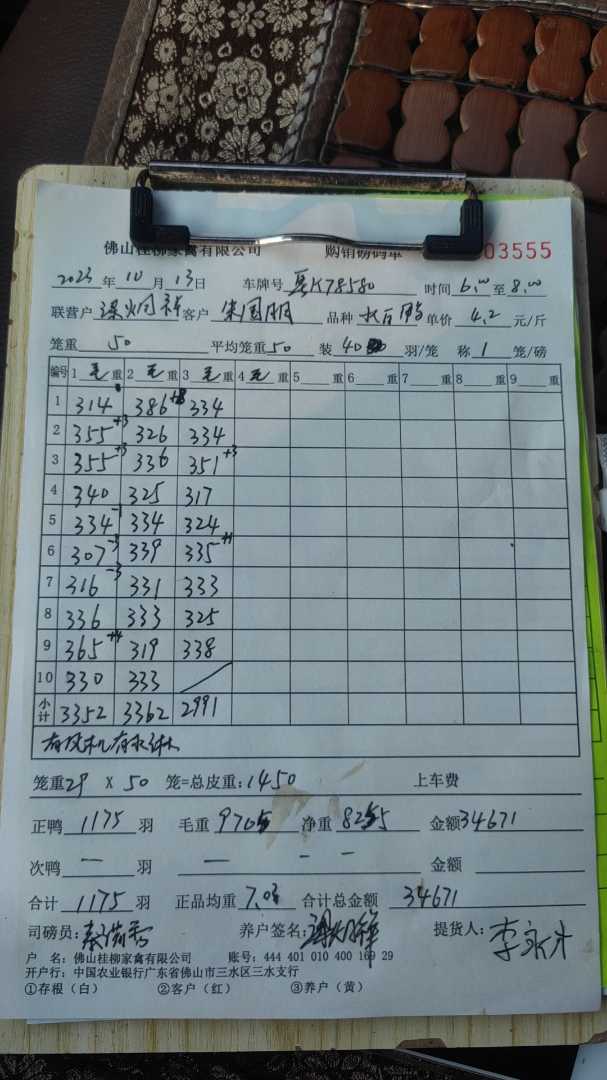 佛山桂柳家禽有限公司 购销磅码单 03555
2023年10月13日 车牌号 K78580 时间6.00至8.00
联营户 客户 集团 品种 单价4.2元/斤
笼重50 平均笼重50 装40羽/笼 称1笼/磅
编号 1毛重 2毛重 3毛重 4毛重 5重 6重 7重 8重 9重
1 314 386+8 334
2 355+3 326 334
3 355+3 336 351+3
4 340 325 317
5 334-1 334 324
6 307-3 339 335+1
7 316-3 331 333
8 336 333 325
9 365+4 319 338
10 330 333
小计 3352 3362 2991
有风机有水淋
笼重29X50笼=总皮重:1450 上车费
正鸭1175羽 毛重9705 净重8255 金额34671
次鸭—羽 — — — 金额
合计1175羽 正品均重7.03 合计总金额34671
司磅员: 养户签名: 提货人:李永
户 名:佛山桂柳家禽有限公司 账号:444 401 010 400 169 29
开户行:中国农业银行广东省佛山市三水区三水支行
①存根(白) ②客户(红) ③养户(黄)